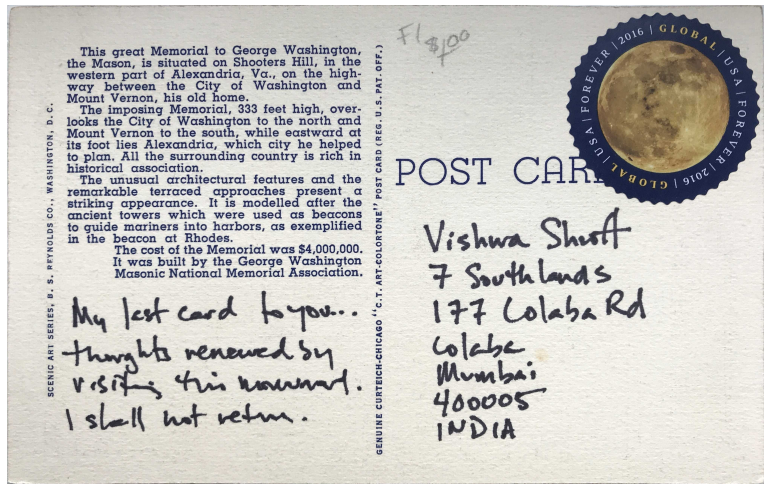 This great Memorial to George Washington,
the Mason, is situated on Shooters Hill, in the
western part of Alexandria, Va., on the high-
way between the City of Washington and
Mount Vernon, his old home.
The imposing Memorial, 333 feet high, over-
looks the City of Washington to the north and
Mount Vernon to the south, while eastward at
its foot lies Alexandria, which city he helped
to plan. All the surrounding country is rich in
historical association.
The unusual architectural features and the
remarkable terraced approaches present a
striking appearance. It is modelled after the
ancient towers which were used as beacons
to guide mariners into harbors, as exemplified
in the beacon at Rhodes.
The cost of the Memorial was $4,000,000.
It was built by the George Washington
Masonic National Memorial Association.
My last card to you...
thoughts renewed by
visiting this monument.
I shall not return.
SCENIC ART SERIES, B. S. REYNOLDS CO., WASHINGTON, D. C.
GENUINE CURTEICH-CHICAGO "C.T. ART-COLORTONE" POST CARD (REG. U.S. PAT. OFF.)
$1.00
FOREVER | 2016 | GLOBAL | USA | FOREVER | 2016 | GLOBAL | USA |
POST CAR
Vishwa Shroff
7 Southlands
177 Colaba Rd
Colaba
Mumbai
400005
INDIA